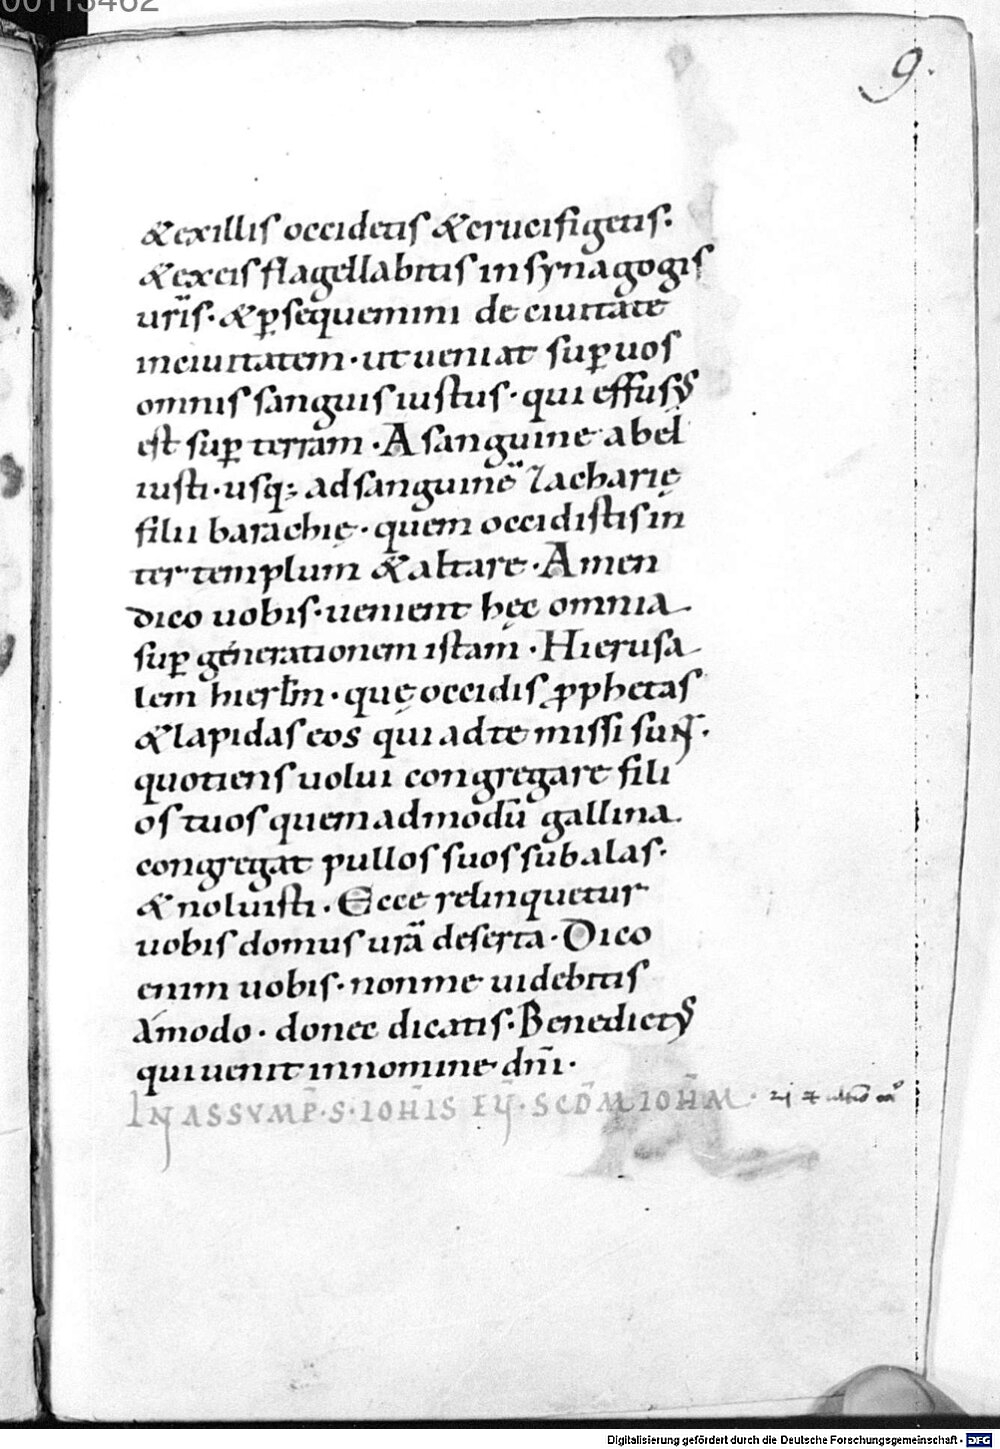 00113462
9.
&exillis occidetis &crucifigetis.
&exeis flagellabitis insynagogis
ur̄is. &p̲sequemini de ciuitate
inciuitatem. ut ueniat sup̲uos
omnis sanguis iustus. qui effusꝰ
est sup̲ terram. A sanguine abel
iusti. usq; adsanguinē Zacharię
filii barachię. quem occidistis in
ter templum & altare. Amen
dico uobis. uenient hęc omnia
sup̲ generationem istam. Hierusa
lem hierłm. quę occidis ꝓphetas
&lapidas eos qui adte missi sunt.
quotiens uolui congregare fili
os tuos quemadmodū gallina
congregat pullos suos sub alas.
& noluisti. Ecce relinquetur
uobis domus ur̄a deserta. Dico
enim uobis. nonme uidebitis
ámodo. donec dicatis. Benedictꝰ
qui uenit innomine dn̄i.
IN ASSVMP̄. S. IOH̄IS EŪ. SCD̄M IOH̄M.
Digitalisierung gefördert durch die Deutsche Forschungsgemeinschaft - DFG